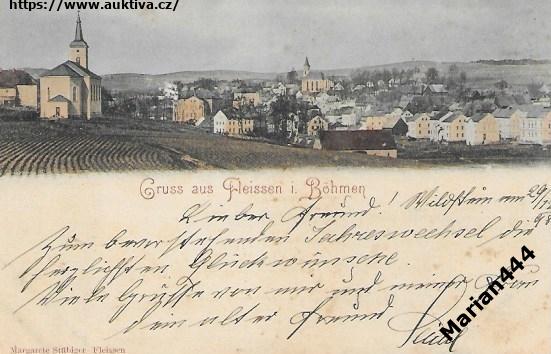 https://www.auktiva.cz/
Gruss aus Fleissen i. Böhmen
Lieber Freund! Wildstein am 29/12 98
Zum bevorstehenden Jahreswechsel die
herzlichsten Glückwünsche.
Viele Grüsse von mir und meiner Frau
dein alter Freund
Marian444
Margarete Stübiger Fleissen